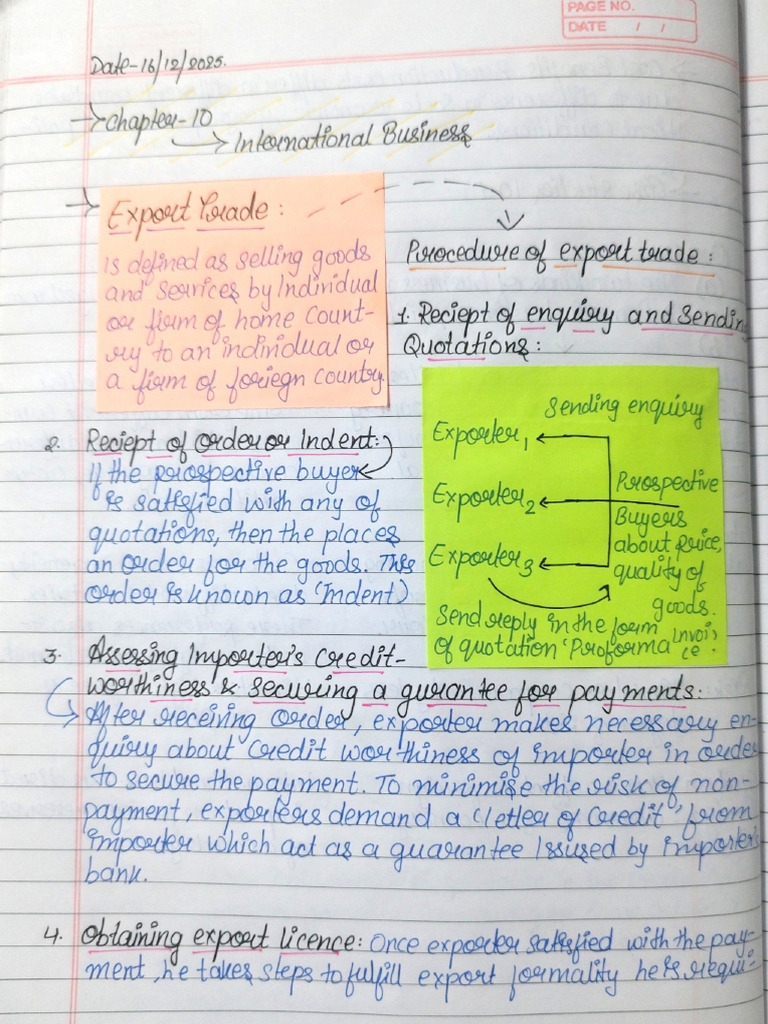 PAGE NO.
DATE / /
Date-16/12/2025.
→ Chapter-10
→ International Business
→ Export Trade :
is defined as selling goods
and services by individual
or firm of home count-
ry to an individual or
a firm of foriegn country.
Procedure of export trade :
1. Reciept of enquiry and sendin
Quotations :
Sending enquiry
Exporter1
Exporter2
Exporter3
Prospective
Buyers
about price,
quality of
goods.
Send reply in the form
of quotation 'Proforma Invoi
ce
2. Reciept of order or Indent :
If the prospective buyer
is satisfied with any of
quotations, then the places
an order for the goods. This
order is known as 'Indent)
3. Assessing Importer's credit-
worthiness & securing a gurantee for payments :
After receiving order, exporter makes necessary en-
quiry about credit worthiness of importer in order
to secure the payment. To minimise the risk of non-
payment, exporters demand a 'letter of credit' from
importer which act as a guarantee Issused by importer's
bank.
4. Obtaining export licence : Once exporter satisfied with the pay-
ment, he takes steps to fulfill export formality he is requi-